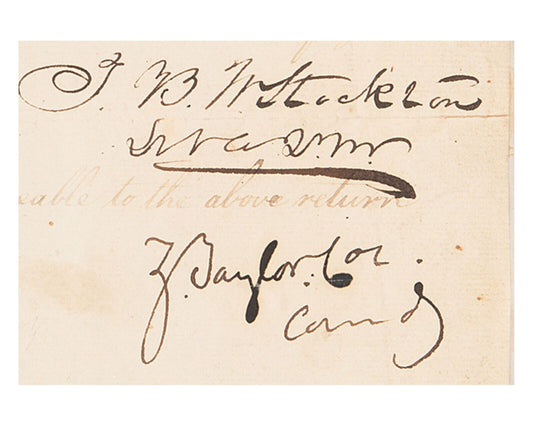 T. B. W. Stockton
Lt & A.Q.M.
eable to the above return
Z. Taylor. Col.
Comdg